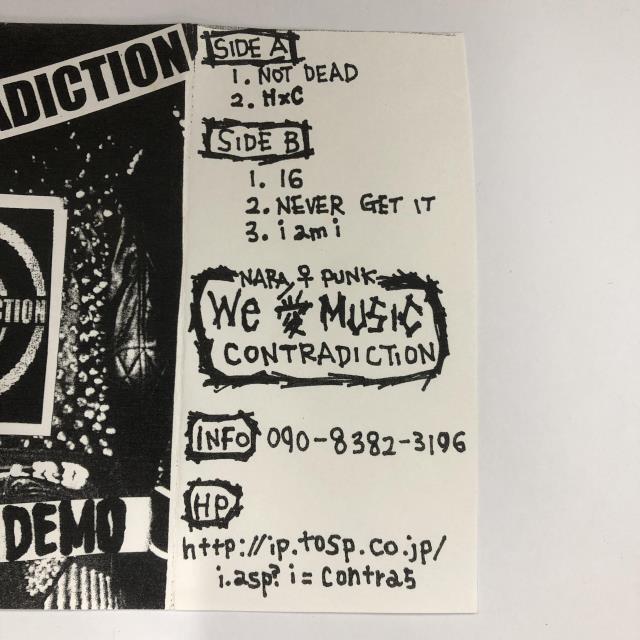 ADICTION
CTION
DEMO
SIDE A
1. NOT DEAD
2. HxC
SIDE B
1. 16
2. NEVER GET IT
3. i am i
NARA ♀ PUNK
We 愛 MUSIC
CONTRADICTION
INFO 090-8382-3196
HP
http://ip.tosp.co.jp/
i.asp?i=contra5